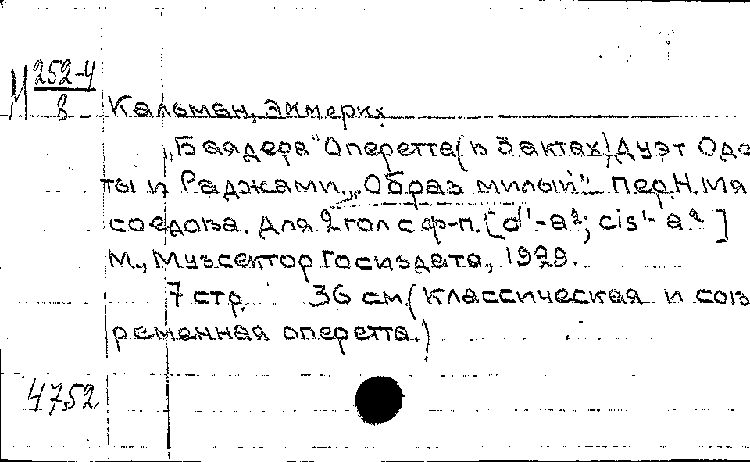 М 252-4
8
Кальман, Эммерих
„Баядера" Оперетта (в 3 актах) Дуэт Оде
ты и Раджами. „Образ милый" пер. Н. Мя
соедова. Для 2 гол с ф-п. [d¹-a²; cis¹-a²]
М., Музсектор Госиздата, 1929.
7 стр. 36 см. (Классическая и сов
ременная оперетта.)
4752